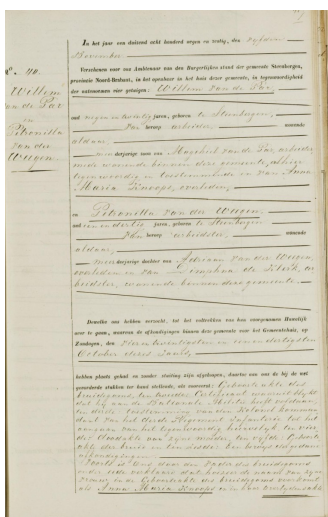 In het jaar een duizend acht honderd negen en veertig, den vijfden
November
Verschenen voor ons Ambtenaar van den Burgerlijken stand der gemeente Steenbergen,
provincie Noord-Brabant, in het openbaar in het huis dezer gemeente, in tegenwoordigheid
der nagenoemde vier getuigen: Willem van de Par,
No. 40.
Willem
van de Par
en
Petronella
van der
Wegen
oud negen en twintig jaren, geboren te Steenbergen,
van beroep arbeider, wonende
aldaar,
meerderjarige zoon van van de Par, arbeider,
mede wonende binnen deze gemeente, alhier
tegenwoordig en toestemmende en van Anna
Maria Knoops, overleden,
en Petronella van der Wegen,
oud een en dertig jaren, geboren te Steenbergen
van beroep arbeidster, wonende
aldaar,
meerderjarige dochter van Adriaan van der Wegen,
overleden en van Dimphna de Klerk, ar-
beidster, wonende binnen deze gemeente.
Dewelke ons hebben verzocht, tot het voltrekken van hun voorgenomen Huwelijk
over te gaan, waarvan de afkondigingen binnen deze gemeente voor het Gemeentehuis, op
Zondagen, den een en twintigsten en acht en twintigsten
October dezes jaars,
hebben plaats gehad en zonder stuiting zijn afgeloopen, daartoe aan ons de bij de wet
gevorderde stukken ter hand stellende, als vooreerst: Geboorteakte des
bruidegoms, ten tweede: Certificaat waaruit blijkt
dat hij aan de Nationale Militie heeft voldaan,
ten derde: toestemming van den Kolonel kommandant
van het derde Regiment Infanterie tot het
aangaan van het tegenwoordig huwelijk, ten vier-
de: Doodakte van zijne moeder, ten vijfde: Geboorte-
akte der bruid en ten zesde: 
afkondigingen.
door den vader des bruidegoms
onder eede verklaard dat de naam van zijne
vrouw in de Geboorteakte des bruidegoms voorkomt
als Anna Maria Knoops en in hare overlijdensakte